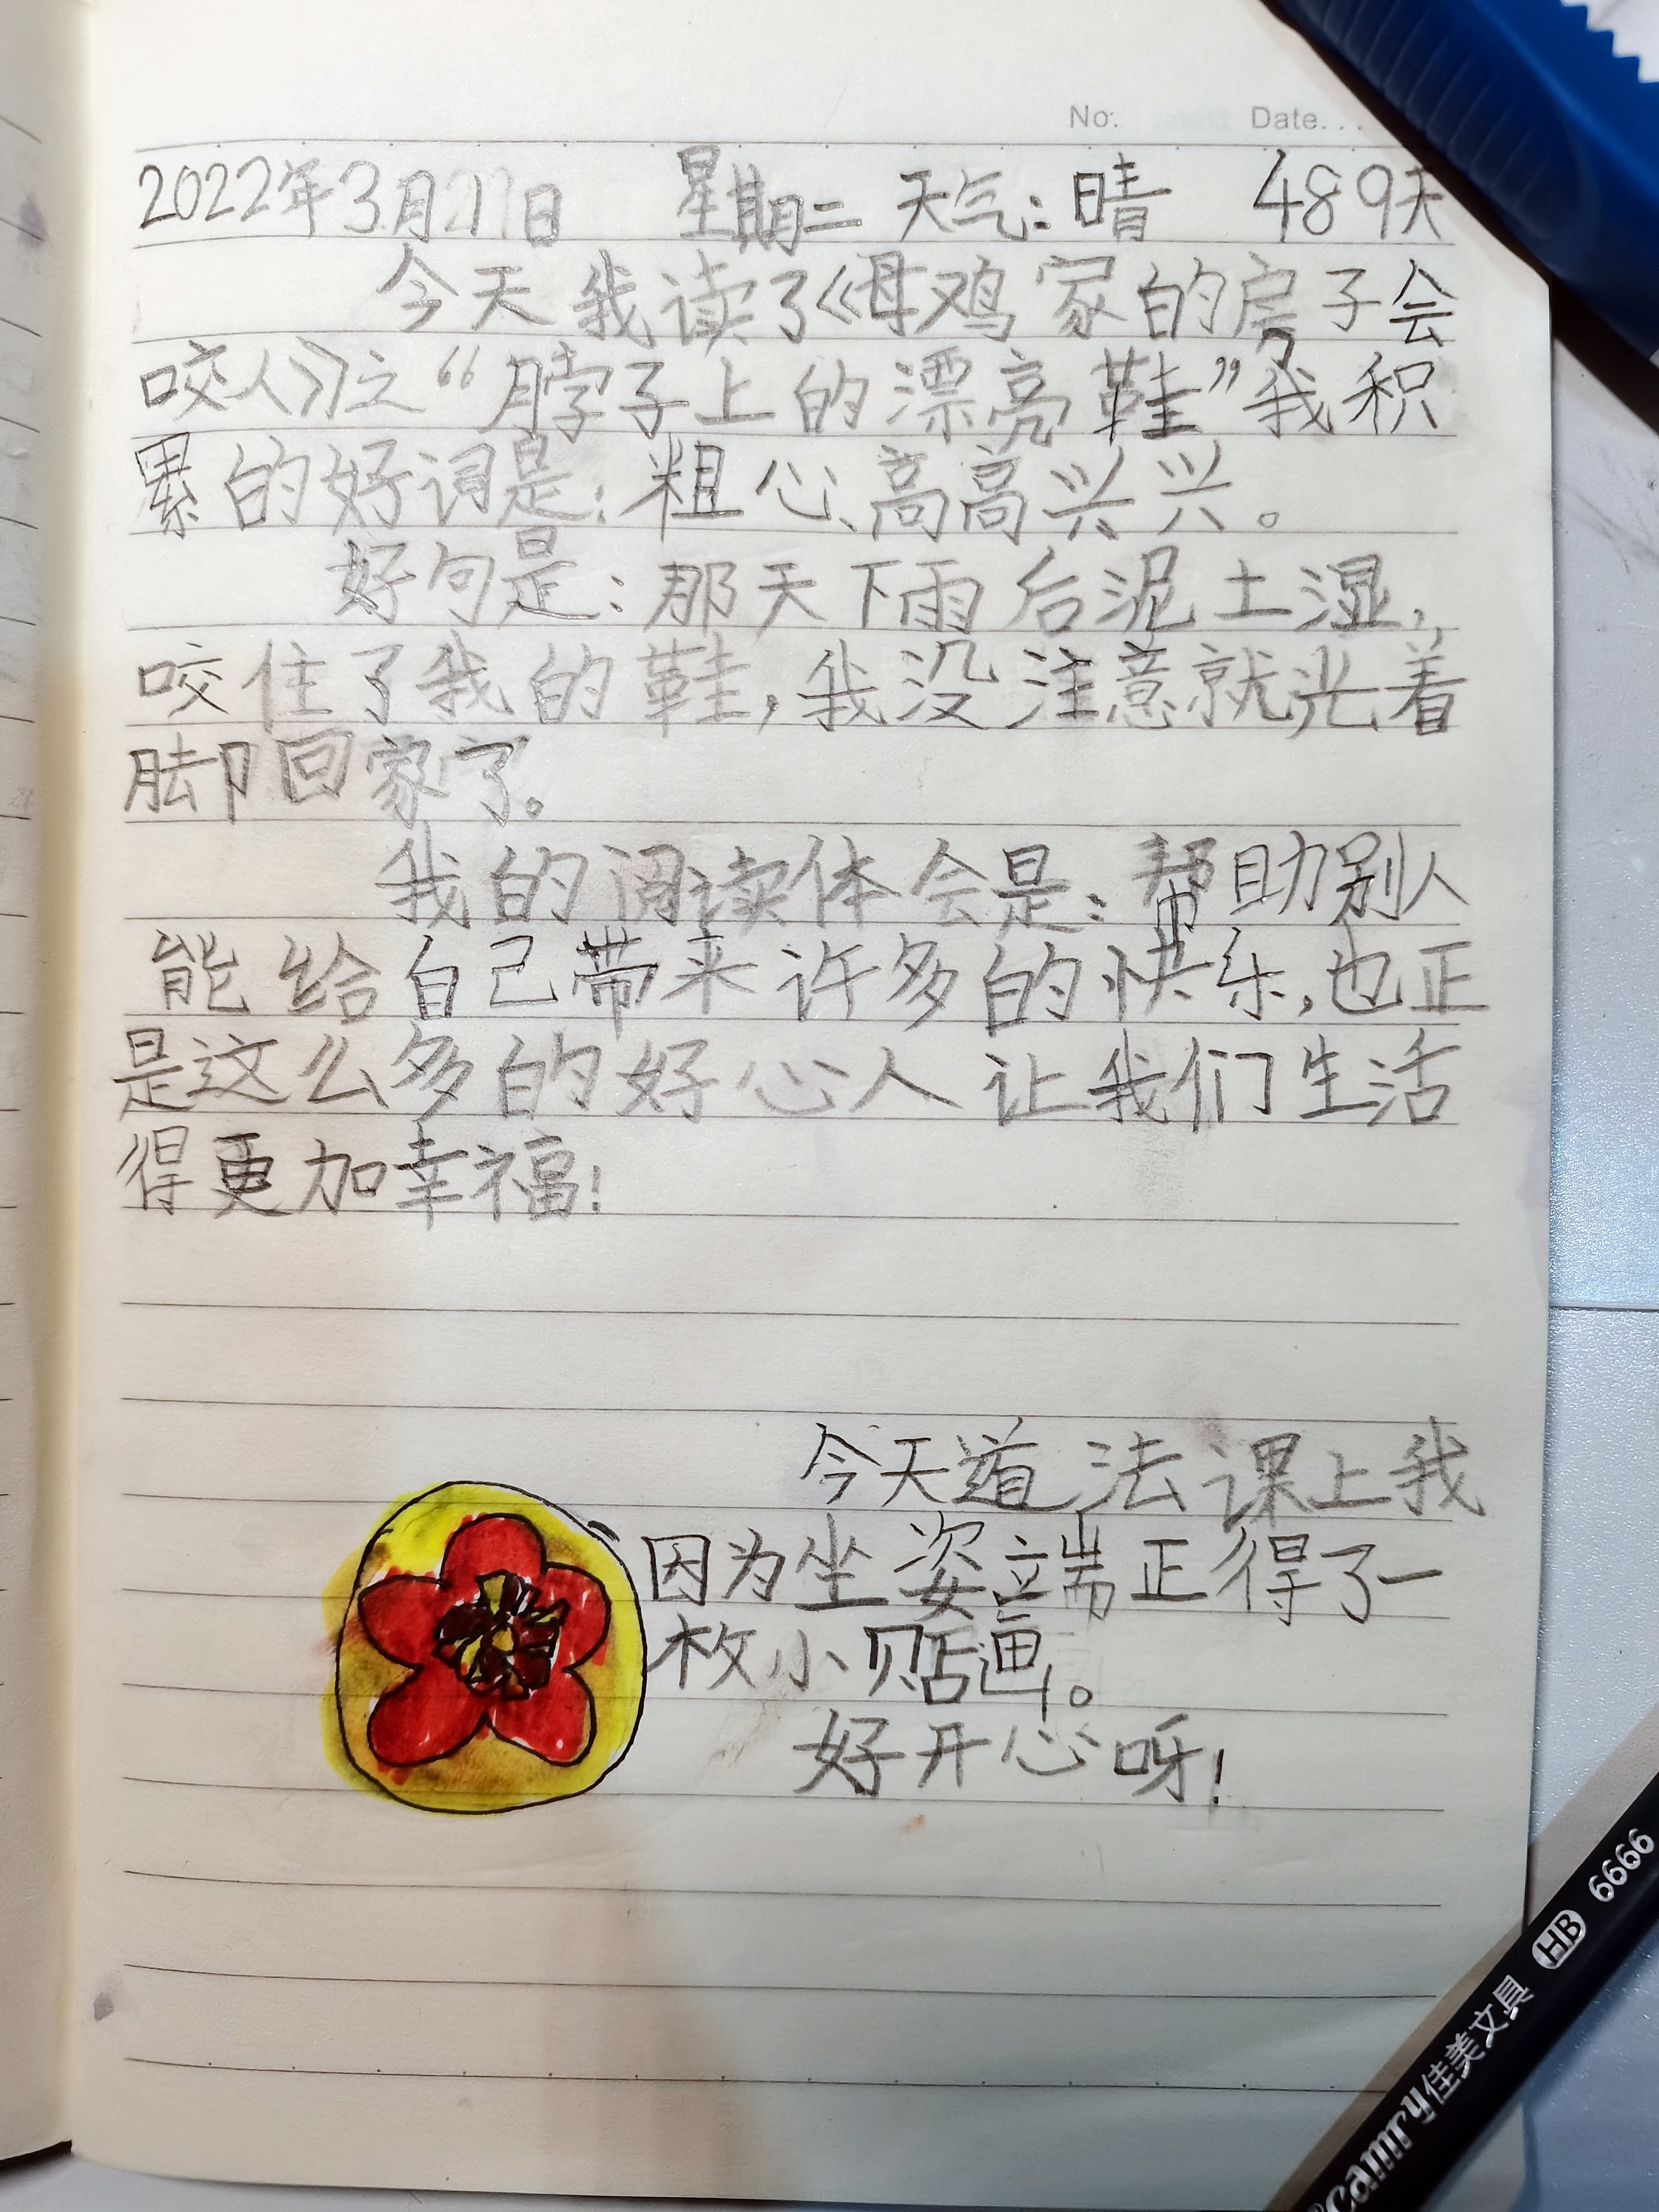 No: Date...
2022年3月21日 星期二 天气:晴 489天
今天我读了《母鸡家的房子会
咬人》之“脖子上的漂亮鞋”我积
累的好词是:粗心、高高兴兴。
好句是:那天下雨后泥土湿,
咬住了我的鞋,我没注意就光着
脚回家了。
我的阅读体会是:帮助别人
能给自己带来许多的快乐,也正
是这么多的好心人让我们生活
得更加幸福!
今天道法课上我
因为坐姿端正得了一
枚小贴画。
好开心呀!
Camry佳美文具 HB 6666